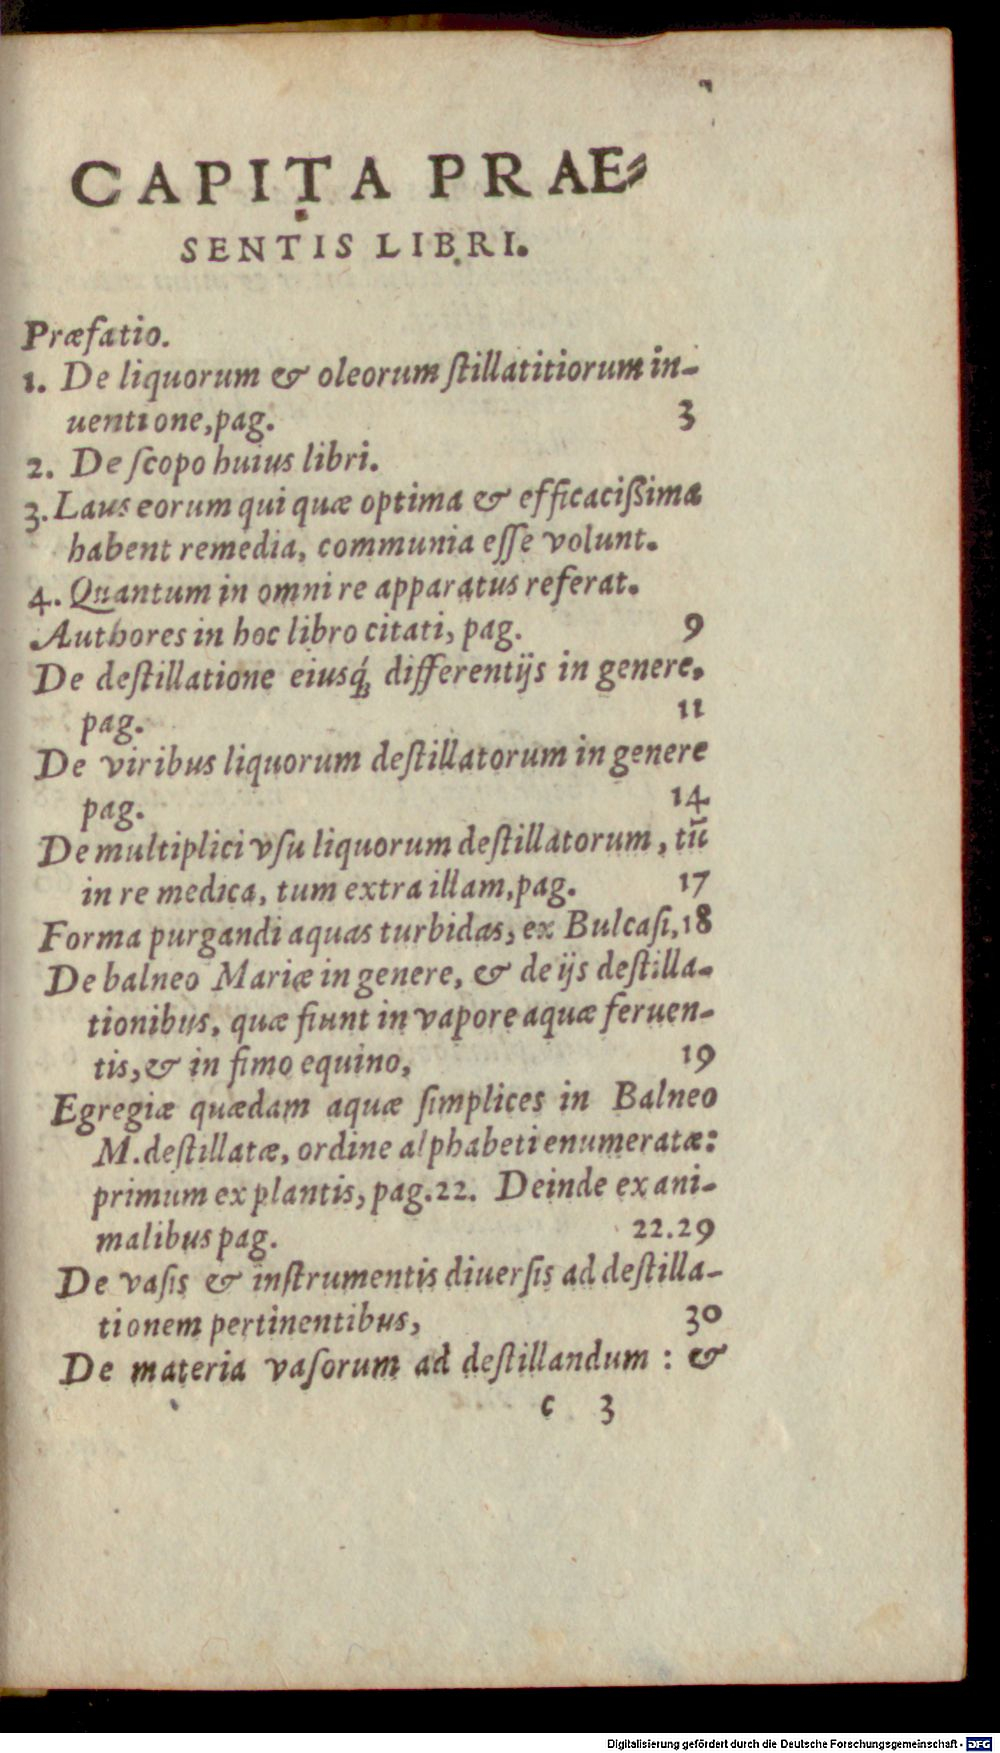 CAPITA PRAE⸗
SENTIS LIBRI.
Præfatio.
1. De liquorum & oleorum ſtillatitiorum in-
uentione, pag. 3
2. De ſcopo huius libri.
3. Laus eorum qui quæ optima & efficacißima
habent remedia, communia eſſe volunt.
4. Quantum in omni re apparatus referat.
Authores in hoc libro citati, pag. 9
De deſtillatione eiusq́; differentijs in genere,
pag. 11
De viribus liquorum deſtillatorum in genere
pag. 14
De multiplici vſu liquorum deſtillatorum, tū
in re medica, tum extra illam, pag. 17
Forma purgandi aquas turbidas, ex Bulcaſi, 18
De balneo Mariæ in genere, & de ijs deſtilla-
tionibus, quæ fiunt in vapore aquæ feruen-
tis, & in fimo equino, 19
Egregiæ quædam aquæ ſimplices in Balneo
M. deſtillatæ, ordine alphabeti enumeratæ:
primum ex plantis, pag. 22. Deinde ex ani-
malibus pag. 22.29
De vaſis & inſtrumentis diuerſis ad deſtilla-
tionem pertinentibus, 30
De materia vaſorum ad deſtillandum : &
c 3
Digitalisierung gefördert durch die Deutsche Forschungsgemeinschaft - DFG